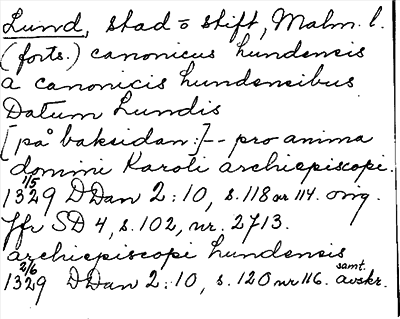 Lund, stad o stift, Malm. l.
(forts.) canonicus lundensis
a canonicis lundensibus
Datum Lundis
[på baksidan:]-- pro anima
domini Karoli archiepiscopi.
1/5
1329 DDan 2:10, s. 118 nr 114. orig.
Jfr SD 4, s. 102, nr. 2713.
archiepiscopi lundensis
2/6 samt.
1329 DDan 2:10, s. 120 nr 116. avskr.